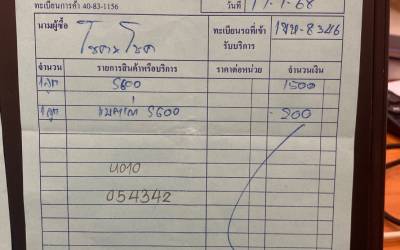 ทะเบียนการค้า 40-83-1156
วันที่ 17-1-68
นามผู้ซื้อ โชคามโชค ทะเบียนรถที่เข้ารับบริการ 1ขห-8346
จำนวน รายการสินค้าหรือบริการ ราคาต่อหน่วย จำนวนเงิน
1ลูก S600 1500
1ลูก S600 200
054342